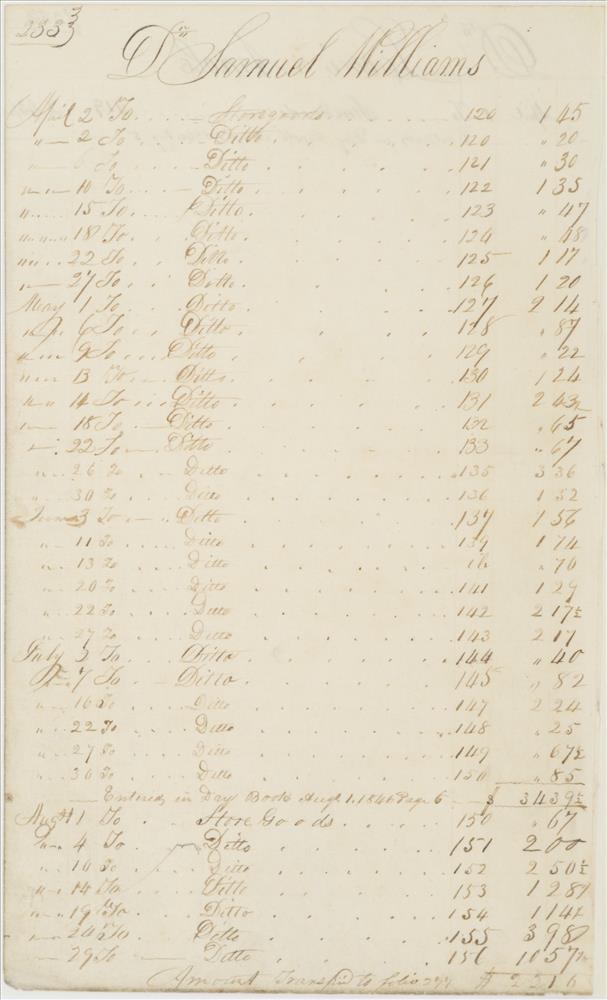 233
Dr Samuel Williams
April 2 To Storegoods 120 1 45
" 2 To Ditto 120 " 20
" To Ditto 121 " 30
" 10 To Ditto 122 1 35
" 15 To Ditto 123 " 47
" 18 To Ditto 124 " 48
" 22 To Ditto 125 1 17
" 27 To Ditto 126 1 20
May 1 To Ditto 127 2 14
" 6 To Ditto 128 " 87
" 9 To Ditto 129 " 22
" 13 To Ditto 130 1 24
" 14 To Ditto 131 2 43
" 18 To Ditto 132 " 65
" 22 To Ditto 133 " 67
" 26 To Ditto 135 3 36
" 30 To Ditto 136 1 52
June 3 To Ditto 137 1 56
" 11 To Ditto 139 1 74
" 13 To Ditto " 70
" 20 To Ditto 141 1 29
" 22 To Ditto 142 2 17½
" 27 To Ditto 143 2 17
July To Ditto 144 " 40
" 7 To Ditto 145 " 82
" 16 To Ditto 147 2 24
" 22 To Ditto 148 " 25
" 27 To Ditto 149 " 67½
" 30 To Ditto 150 " 85
Entered in Day Book Augt 1. 1846 Page 6 $ 34 39½
Augt 1 To Store Goods 150 " 67
" 4 To Ditto 151 2 00
" 10 To Ditto 152 2 50½
" 14 To Ditto 153 1 28
" 19 To Ditto 154 1 14
" 24 To Ditto 155 3 98
" 29 To Ditto 156 10 57
Amount Transfd to folio $ 22 16